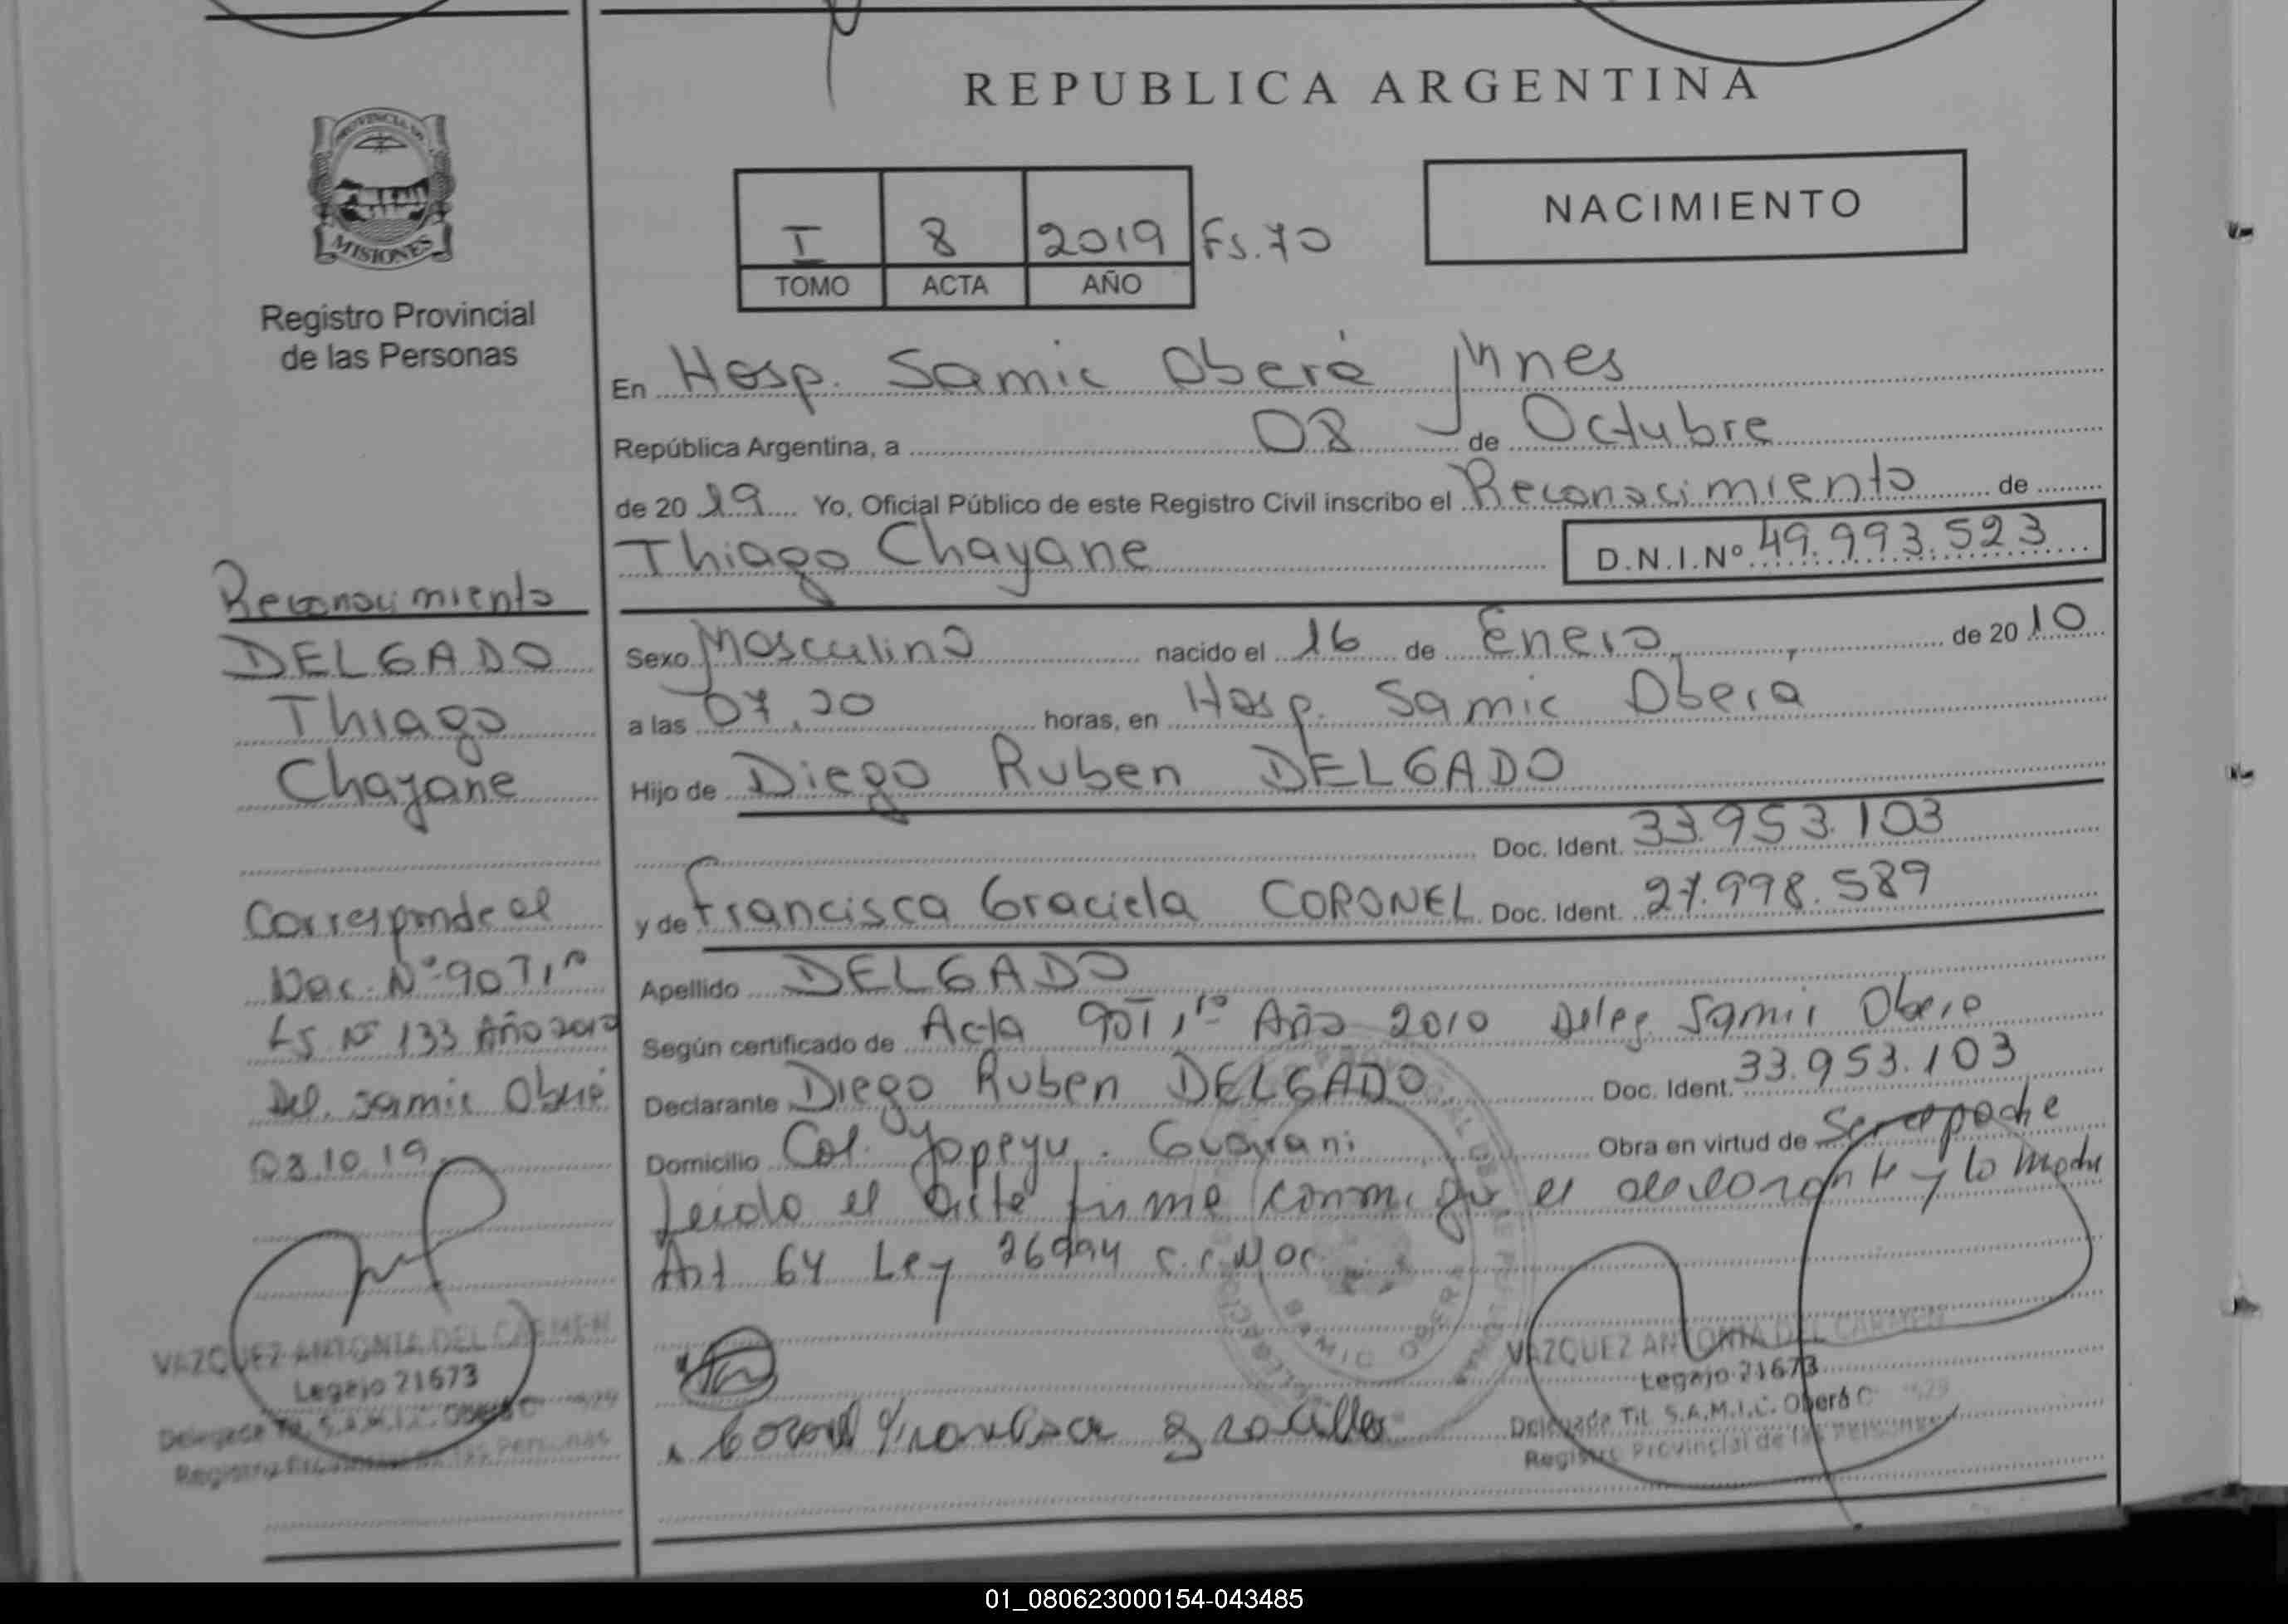 REPUBLICA ARGENTINA
PROVINCIA DE
MISIONES
Registro Provincial
de las Personas
I 8 2019 Fs. 70
TOMO ACTA AÑO
NACIMIENTO
En Hosp. Samic Oberá Mnes
República Argentina, a 08 de Octubre
de 2019 Yo, Oficial Público de este Registro Civil inscribo el Reconocimiento de
Thiago Chayane D.N.I.Nº 49.993.523
Sexo Masculino nacido el 16 de Enero de 2010
a las 07,20 horas, en Hosp. Samic Obera
Hijo de Diego Ruben DELGADO
Doc. Ident. 33.953.103
y de Francisca Graciela CORONEL Doc. Ident. 27.998.589
Apellido DELGADO
Según certificado de Acta 90 Año 2010 Deleg. Samic Obera
Declarante Diego Ruben DELGADO Doc. Ident. 33.953.103
Domicilio Col. Yapeyu. Guarani Obra en virtud de Ser el padre
Leida el acta firma conmigo el declarante y la madre
Art 64 Ley 26994
Coronel Francisca
VAZQUEZ ANTONIA DEL CARMEN
Legajo 21673
Delegada Tit. S.A.M.I.C. Oberá
Registro Provincial de las Personas
Reconocimiento
DELGADO
Thiago
Chayane
Corresponde al
Nac. Nº 90
Fs Nº 133 Año 2010
Del. Samic Oberá
08.10.19
VAZQUEZ ANTONIA DEL CARMEN
Legajo 21673
Delegada Tit. S.A.M.I.C. Oberá
Registro Provincial de las Personas
SAMIC OBERA
01_080623000154-043485